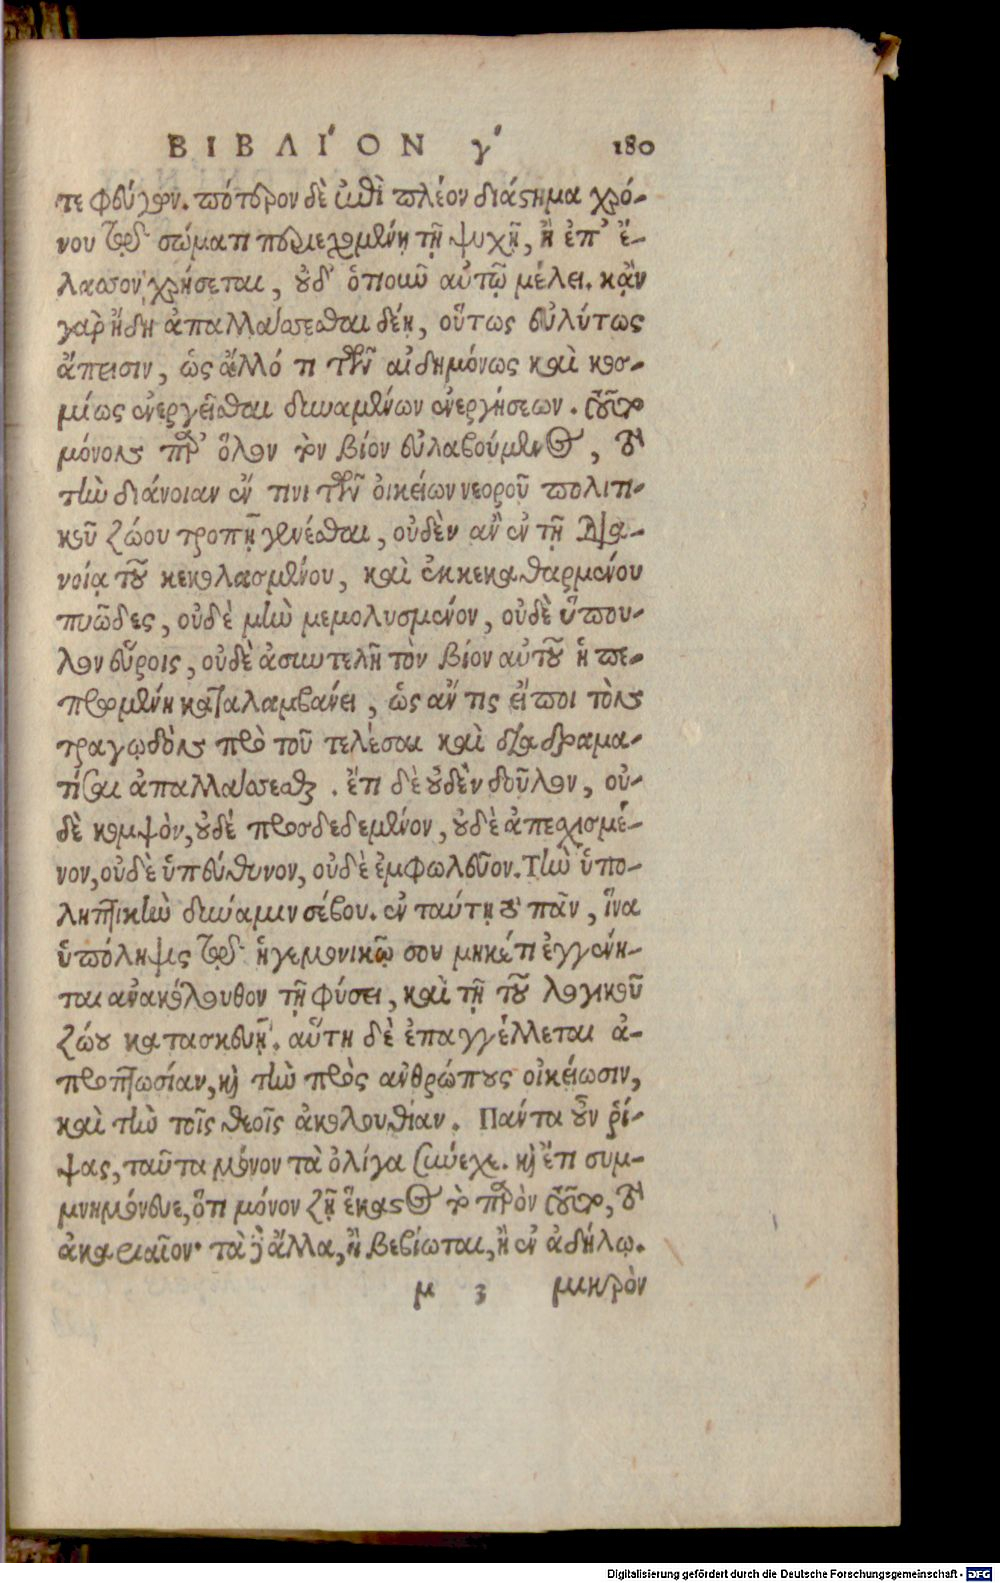 ΒΙΒΛΙ´ΟΝ γ´ 180
τε φεύγων. πότερον δὲ ἐπὶ πλέον διάστημα χρό-
νου τῷ σώματι περιεχομένῃ τῇ ψυχῇ, ἢ ἐπ' ἔ-
λασσον χρήσεται, οὐδ' ὁτιοῦν αὐτῷ μέλει. κᾂν
γὰρ ἤδη ἀπαλλάσσεσθαι δέῃ, οὕτως εὐλύτως
ἄπεισιν, ὡς ἄλλό τι τῶν αἰδημόνως καὶ κοσ-
μίως ἐνεργεῖσθαι δυναμένων ἐνεργήσεων. τοῦτο
μόνον παρ' ὅλον τὸν βίον εὐλαβούμενος, τὸ
τὴν διάνοιαν ἔν τινι τῶν οἰκείων νεοροῦ πολιτι-
κοῦ ζώου τροπῇ γενέσθαι, οὐδὲν ἂν ἐν τῇ δια-
νοίᾳ τοῦ κεκολασμένου, καὶ ἐκκεκαθαρμένου
πυῶδες, οὐδὲ μὴν μεμολυσμένον, οὐδὲ ὕπου-
λον εὕροις, οὐδὲ ἀσυντελῆ τὸν βίον αὐτοῦ ἡ πε-
πρωμένη καταλαμβάνει, ὡς ἄν τις εἴποι τὸν
τραγῳδὸν πρὸ τοῦ τελέσαι καὶ διαδραμα-
τίσαι ἀπαλλάσσεσθαι. ἔτι δὲ οὐδὲν δοῦλον, οὐ-
δὲ κομψὸν, οὐδὲ προσδεδεμένον, οὐδὲ ἀπεσχισμέ-
νον, οὐδὲ ὑπεύθυνον, οὐδὲ ἐμφωλεῦον. Τὴν ὑπο-
ληπτικὴν δύναμιν σέβου. ἐν ταύτῃ τὸ πᾶν, ἵνα
ὑπόληψις τῷ ἡγεμονικῷ σου μηκέτι ἐγγένη-
ται ἀνακόλουθον τῇ φύσει, καὶ τῇ τοῦ λογικοῦ
ζώου κατασκευῇ. αὕτη δὲ ἐπαγγέλλεται ἀ-
προπτωσίαν, καὶ τὴν πρὸς ἀνθρώπους οἰκείωσιν,
καὶ τὴν τοῖς θεοῖς ἀκολουθίαν. Πάντα οὖν ῥί-
ψας, ταῦτα μόνον τὰ ὀλίγα σύνεχε. καὶ ἔτι συμ-
μνημόνευε, ὅτι μόνον ζῇ ἕκαστος τὸ παρὸν τοῦτο, τὸ
ἀκαριαῖον· τὰ δὲ ἄλλα, ἢ βεβίωται, ἢ ἐν ἀδήλῳ.
μ 3 μικρὸν
Digitalisierung gefördert durch die Deutsche Forschungsgemeinschaft - DFG